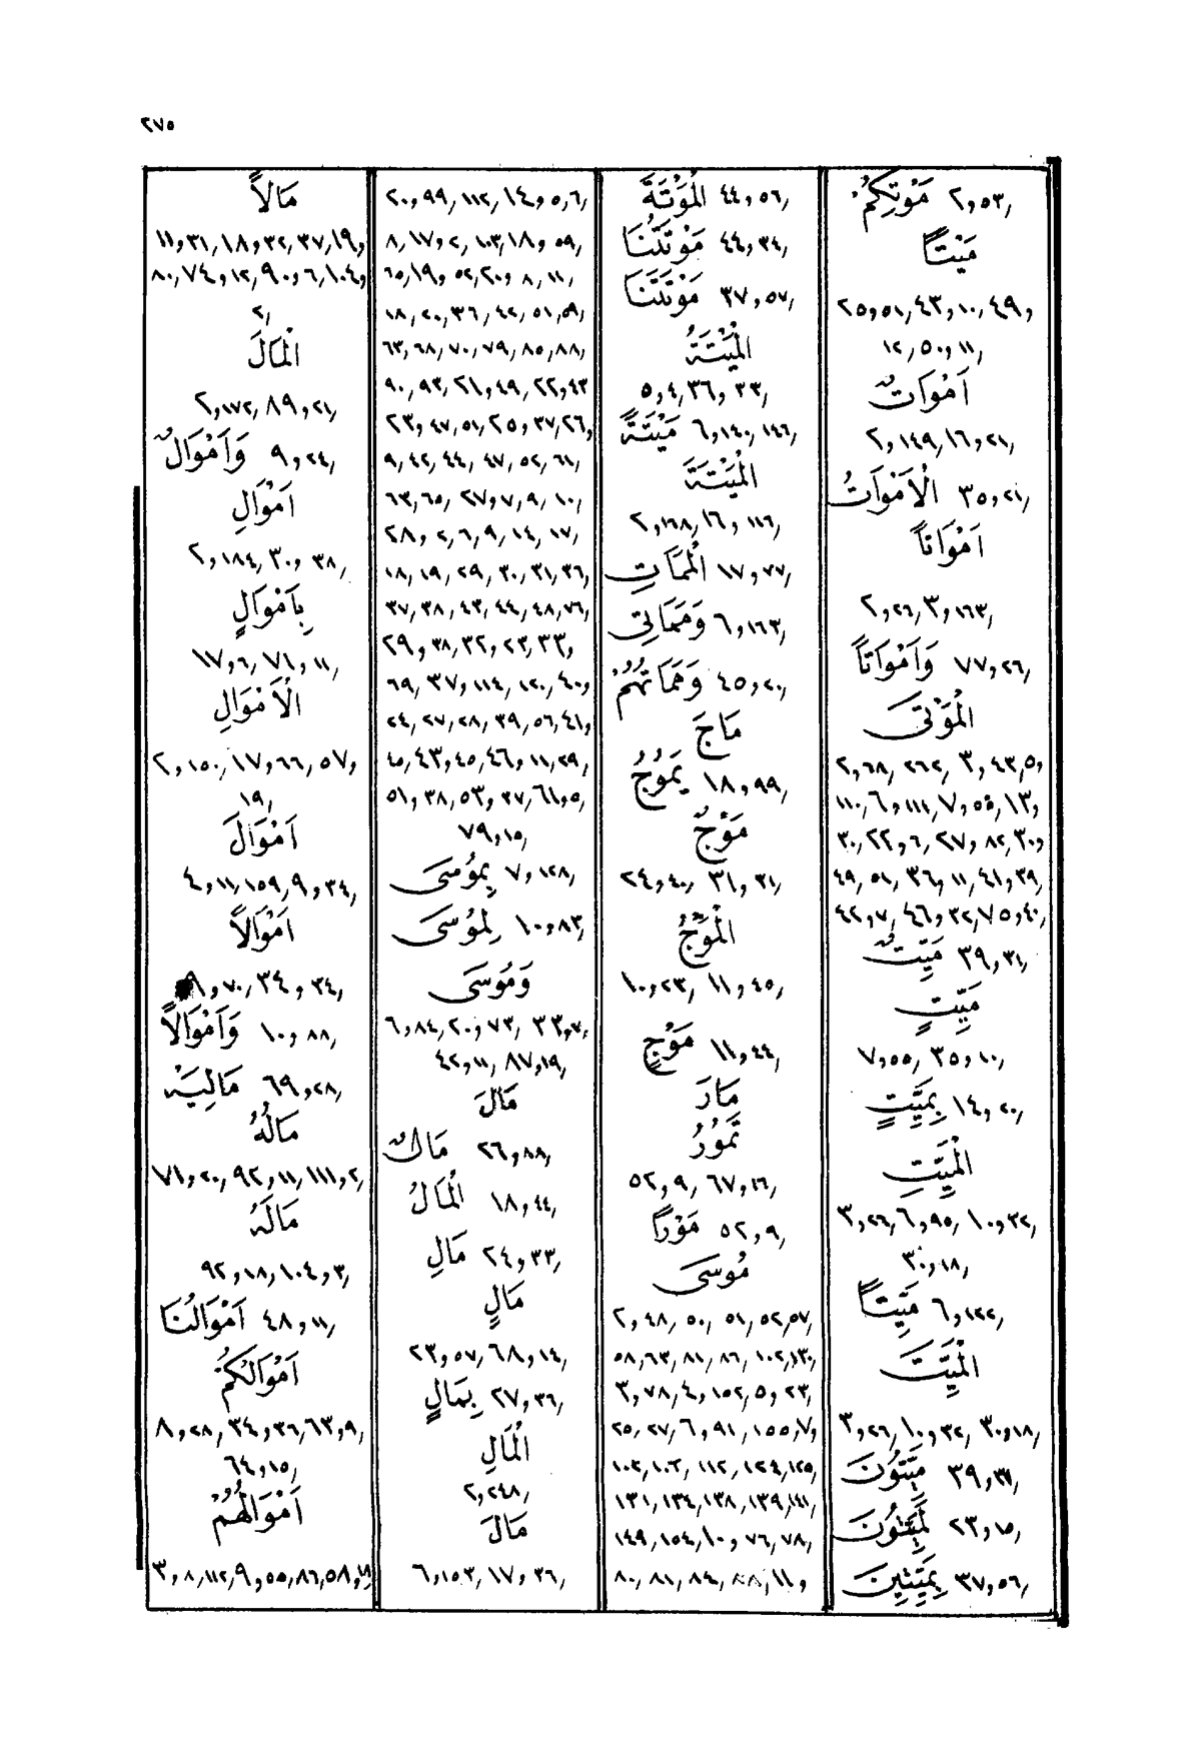 ٢٧٥
٢,٥٣, مَوْتِكُمْ
مَيْتًا
٢٥,٥١, ٤٣, ١٠, ٤٩,
١٢, ٥٠, ١١,
اَمْوَاتٌ
٢,١٤٩, ١٦, ٢١,
٣٥,٢١, الْاَمْوَاتُ
اَمْوَاتاً
٢,٢٦, ٣, ١٦٣,
٧٧,٢٦, وَاَمْوَاتاً
الْمَوْتَى
٢,٦٨, ٢٦٢, ٣,٤٣,٥,
١١٠, ٦, ١١١, ٧, ٥٥, ١٣,
٣٠, ٢٢,٦, ٢٧, ٨٢, ٣٠,
٤٩, ٥١, ٣٦, ١١, ٤١, ٣٩,
٤٢,٧, ٤٦, ٣٢, ٧٥,٤٠,
٣٩,٣١, مَيِّتٌ
مَيِّتٍ
٧,٥٥, ٣٥,١٠,
١٤,٢٠, بِمَيِّتٍ
الْمَيِّتِ
٣,٢٦, ٦, ٩٥, ١٠,٣٢,
٣٠,١٨,
٦,١٢٢, مَيِّتاً
الْمَيِّتَ
٣,٢٦, ١٠, ٣٢, ٣٠,١٨,
٣٩,٣١, مَيِّتُونَ
٢٣,١٥, لَمَيِّتُونَ
٣٧,٥٦, بِمَيِّتِينَ
٤٤,٥٦, الْمَوْتَةَ
٤٤,٣٤, مَوْتَتُنَا
٣٧,٥٧, مَوْتَتَنَا
الْمَيْتَةُ
٥,٤,٣٦, ٣٣,
٦,١٤٠, ١٤٦, مَيْتَةً
الْمَيْتَةَ
٢,١٦٨, ١٦, ١١٦,
١٧,٧٧, الْمَمَاتِ
٦,١٦٣, وَمَمَاتِى
٤٥,٢٠, وَمَمَاتُهُمْ
مَاجَ
١٨,٩٩, يَمُوجُ
مَوْجٌ
٢٤,٤٠, ٣١,٣١,
الْمَوْجُ
١٠,٢٣, ١١,٤٥,
١١,٤٤, مَوْجٍ
مَارَ
تَمُورُ
٥٢,٩, ٦٧,١٦,
٥٢,٩, مَوْراً
مُوسَى
٢,٤٨, ٥٠, ٥١, ٥٢,٥٧,
٥٨,٦٣, ٨١, ٨٦, ١٠٢,١٣٠,
٣,٧٨, ٤, ١٥٢, ٥, ٢٣,
٢٥, ٢٧, ٦, ٩١, ١٥٥,٧,
١٠٢, ١٠٣, ١١٢, ١٢٤, ١٢٥,
١٣١, ١٣٤, ١٣٨, ١٣٩, ١٤١,
١٤٩, ١٥٤, ١٠, ٧٦, ٧٨,
٨٠, ٨١, ٨٤, ٨٨, ١١,
٢٠, ٩٩, ١١٢, ١٤, ٥,٦,
٨, ١٧,٢, ١٠٣, ١٨, ٥٩,
٦٥, ١٩, ٥٢, ٢٠, ٨, ١١,
١٨, ٢٠, ٣٦, ٤٢, ٥١, ٥٩,
٦٣, ٦٨, ٧٠, ٧٩, ٨٥, ٨٨,
٩٠, ٩٣, ٢١, ٤٩, ٢٢,٤٣
٢٣, ٤٧, ٥١, ٢٥, ٣٧, ٢٦,
٩, ٤٢, ٤٤, ٤٧, ٥٢, ٦١,
٦٣, ٦٥, ٢٧, ٧, ٩, ١٠,
٢٨, ٢,٦, ٩, ١٤, ١٧,
١٨, ١٩, ٢٩, ٣٠, ٣١, ٣٦,
٣٧, ٣٨, ٤٣, ٤٤, ٤٨, ٧٦,
٢٩, ٣٨, ٣٢, ٢٣, ٣٣,
٦٩, ٣٧, ١١٤, ١٢٠, ٤٠,
٢٤, ٢٧, ٢٨, ٣٩, ٥٦, ٤١,
٤٥, ٤٣, ٤٥, ٤٦, ١١, ٢٩,
٥١, ٣٨, ٥٣, ٣٧, ٦١,٥,
٧٩,١٥,
٧,١٢٨, بِمُوسَى
١٠,٨٣, لِمُوسَى
وَمُوسَى
٦,٨٤, ٢٠, ٧٣, ٣٣,٧,
٤٢,١١, ٨٧,١٩,
مَالَ
٢٦,٨٨, مَالٌ
١٨,٤٤, الْمَالُ
٢٤,٣٣, مَالِ
مَالٍ
٢٣,٥٧, ٦٨, ١٤,
٢٧,٣٦, بِمَالٍ
الْمَالِ
٢,٢٤٨,
مَالَ
٦,١٥٣, ١٧, ٣٦,
مَالاً
١١,٣١, ١٨, ٣٢, ٣٧, ١٩,
٨٠, ٧٤, ١٢, ٩٠, ٦, ١٠٤,
٢,
الْمَالَ
٢,١٧٢, ٨٩,٢١,
٩,٢٤, وَاَمْوَالٌ
اَمْوَالِ
٢,١٨٤, ٣٠, ٣٨,
بِاَمْوَالٍ
١٧,٦, ٧١, ١١,
الْاَمْوَالِ
٢,١٥٠, ١٧, ٦٦, ٥٧,
١٩,
اَمْوَالَ
٤,١١, ١٥٩, ٩, ٣٤,
اَمْوَالاً
٩,٧٠, ٣٤, ٣٤,
١٠,٨٨, وَاَمْوَالاً
٦٩,٢٨, مَالِيَهْ
مَالُهُ
٧١,٢٠, ٩٢,١١, ١١١,٢,
مَالَهُ
٩٢,١٨, ١٠٤,٣,
٤٨,١١, اَمْوَالُنَا
اَمْوَالُكُمْ
٨,٢٨, ٣٤, ٣٦, ٦٣,٩,
٦٤,١٥,
اَمْوَالُهُمْ
٣,٨, ١١٢, ٩, ٥٥, ٨٦, ٥٨,